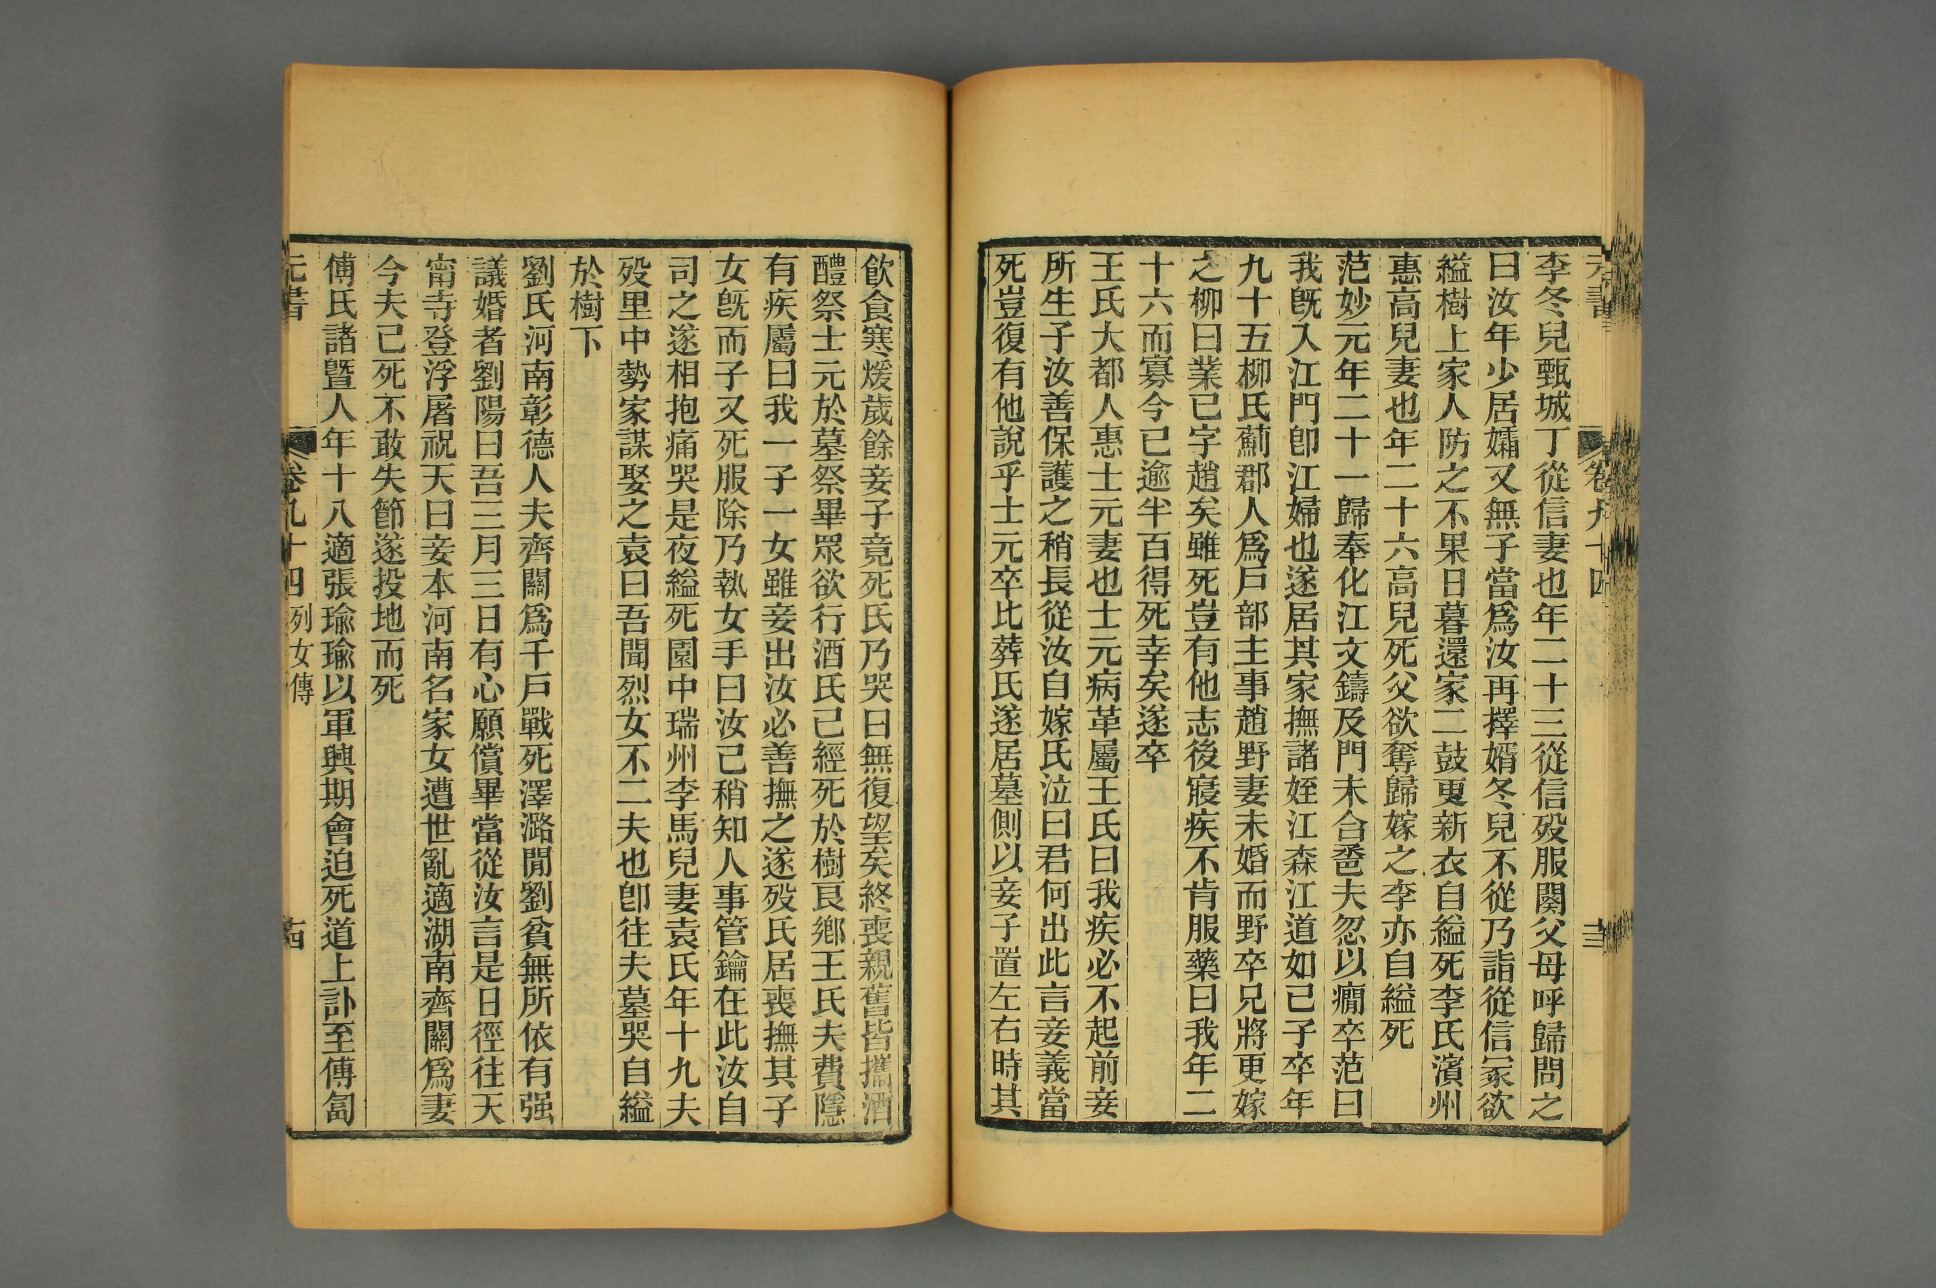 元書
卷九十四
十三
李冬兒甄城丁從信妻也年二十三從信歿服闋父母呼歸問之
曰汝年少居孀又無子當爲汝再擇婿冬兒不從乃詣從信冢欲
縊樹上家人防之不果日暮還家二鼓更新衣自縊死李氏濱州
惠高兒妻也年二十六高兒死父欲奪歸嫁之李亦自縊死
范妙元年二十一歸奉化江文鑄及門未合巹夫忽以癇卒范曰
我旣入江門卽江婦也遂居其家撫諸姪江森江道如己子卒年
九十五柳氏薊郡人爲戶部主事趙野妻未婚而野卒兄將更嫁
之柳曰業已字趙矣雖死豈有他志後寢疾不肯服藥曰我年二
十六而寡今已逾半百得死幸矣遂卒
王氏大都人惠士元妻也士元病革屬王氏曰我疾必不起前妾
所生子汝善保護之稍長從汝自嫁氏泣曰君何出此言妾義當
死豈復有他說乎士元卒比葬氏遂居墓側以妾子置左右時其
飲食寒煖歲餘妾子竟死氏乃哭曰無復望矣終喪親舊皆攜酒
醴祭士元於墓祭畢眾欲行酒氏已經死於樹艮鄉王氏夫費隱
有疾屬曰我一子一女雖妾出汝必善撫之遂歿氏居喪撫其子
女旣而子又死服除乃執女手曰汝已稍知人事管鑰在此汝自
司之遂相抱痛哭是夜縊死園中瑞州李馬兒妻袁氏年十九夫
歿里中勢家謀娶之袁曰吾聞烈女不二夫也卽往夫墓哭自縊
於樹下
劉氏河南彰德人夫齊關爲千戶戰死澤潞閒劉貧無所依有强
議婚者劉陽曰吾三月三日有心願償畢當從汝言是日徑往天
甯寺登浮屠祝天曰妾本河南名家女遭世亂適湖南齊關爲妻
今夫已死不敢失節遂投地而死
傅氏諸曁人年十八適張瑜瑜以軍興期會迫死道上訃至傅匐
元書
卷九十四列女傳
十四